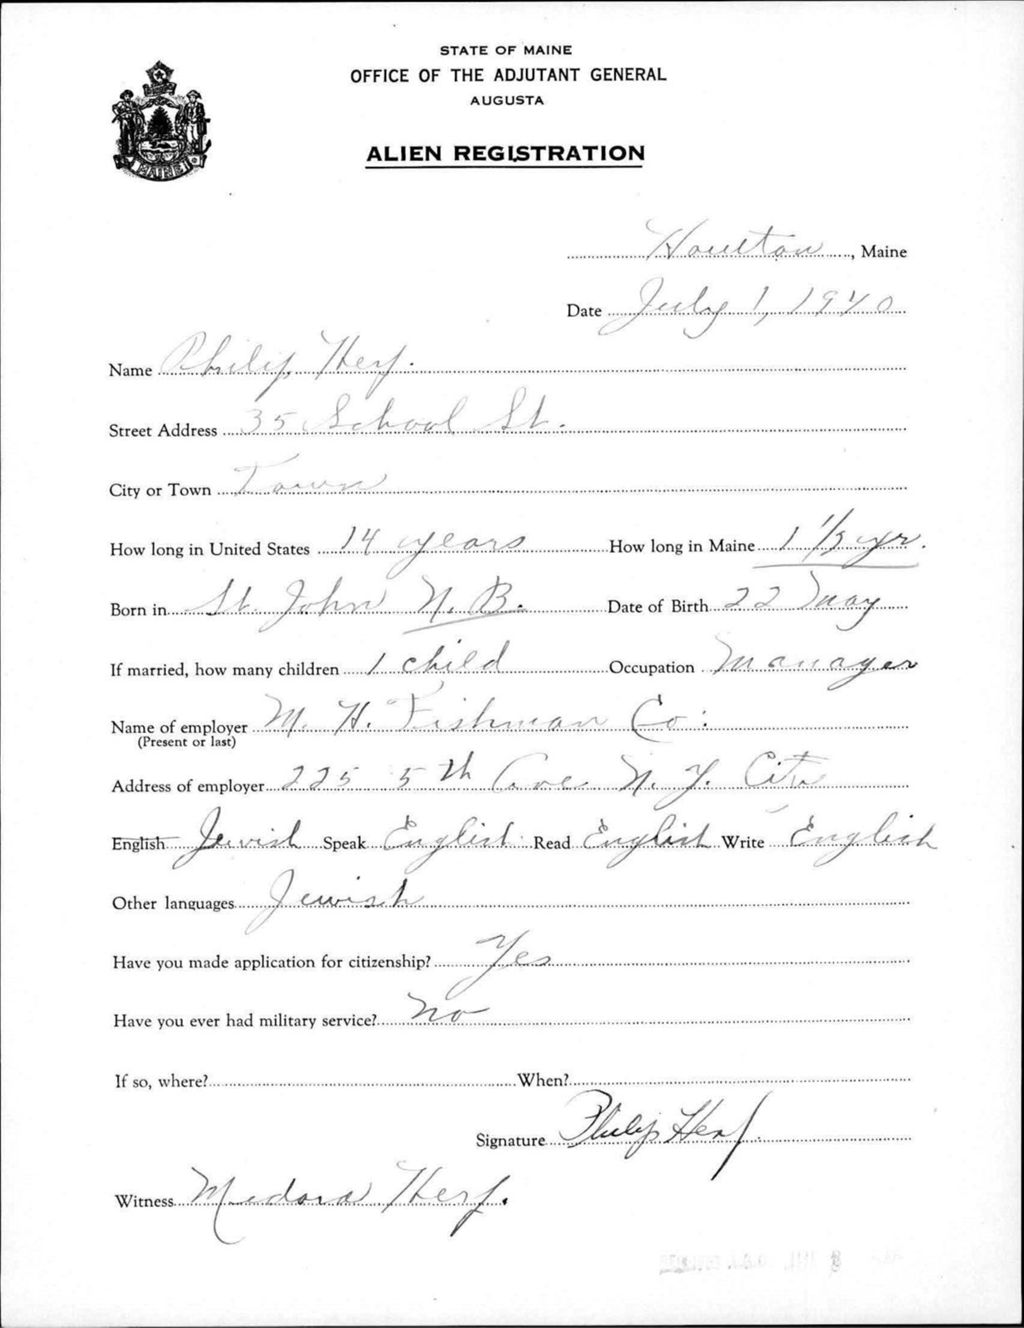 STATE OF MAINE
OFFICE OF THE ADJUTANT GENERAL
AUGUSTA
ALIEN REGISTRATION
MAINE
Houlton, Maine
Date July 1, 1940
Name Philip Herf.
Street Address 35 School St.
City or Town Town
How long in United States 14 years How long in Maine 1 1/3 yr.
Born in St. John N. B. Date of Birth 22 May
If married, how many children 1 child Occupation Manager
Name of employer M. H. Fishman Co.
(Present or last)
Address of employer 225 5th Ave N. Y. City
English Jewish Speak English Read English Write English
Other languages Jewish
Have you made application for citizenship? Yes
Have you ever had military service? No
If so, where? When?
Signature Philip Herf
Witness Medora Herf.